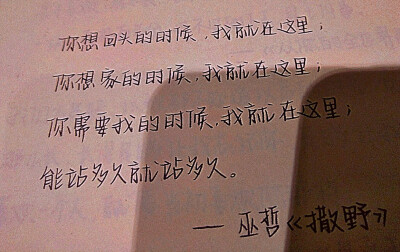 你想回头的时候,我就在这里;
你想家的时候,我就在这里;
你需要我的时候,我就在这里;
能站多久就站多久。
——巫哲《撒野》